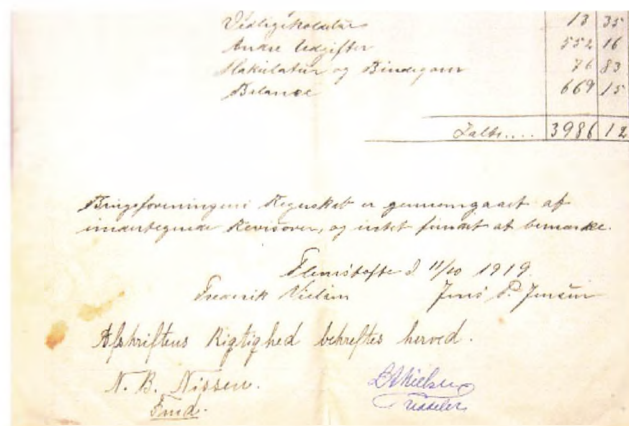 Vedligeholdelse 13 35
Andre Udgifter 552 16
Makulatur og Bindegarn 76 83
Balance 669 15
Ialt.... 3986 12
Brugsforeningens Regnskab er gennemgaaet af
undertegnede Revisorer, og intet fundet at bemærke.
Flemstofte d 11/10 1919.
Frederik Nielsen Jens P. Jensen
Afskriftens Rigtighed bekræftes herved.
N. B. Nissen.
Fmd.
Nielsen
Uddeler